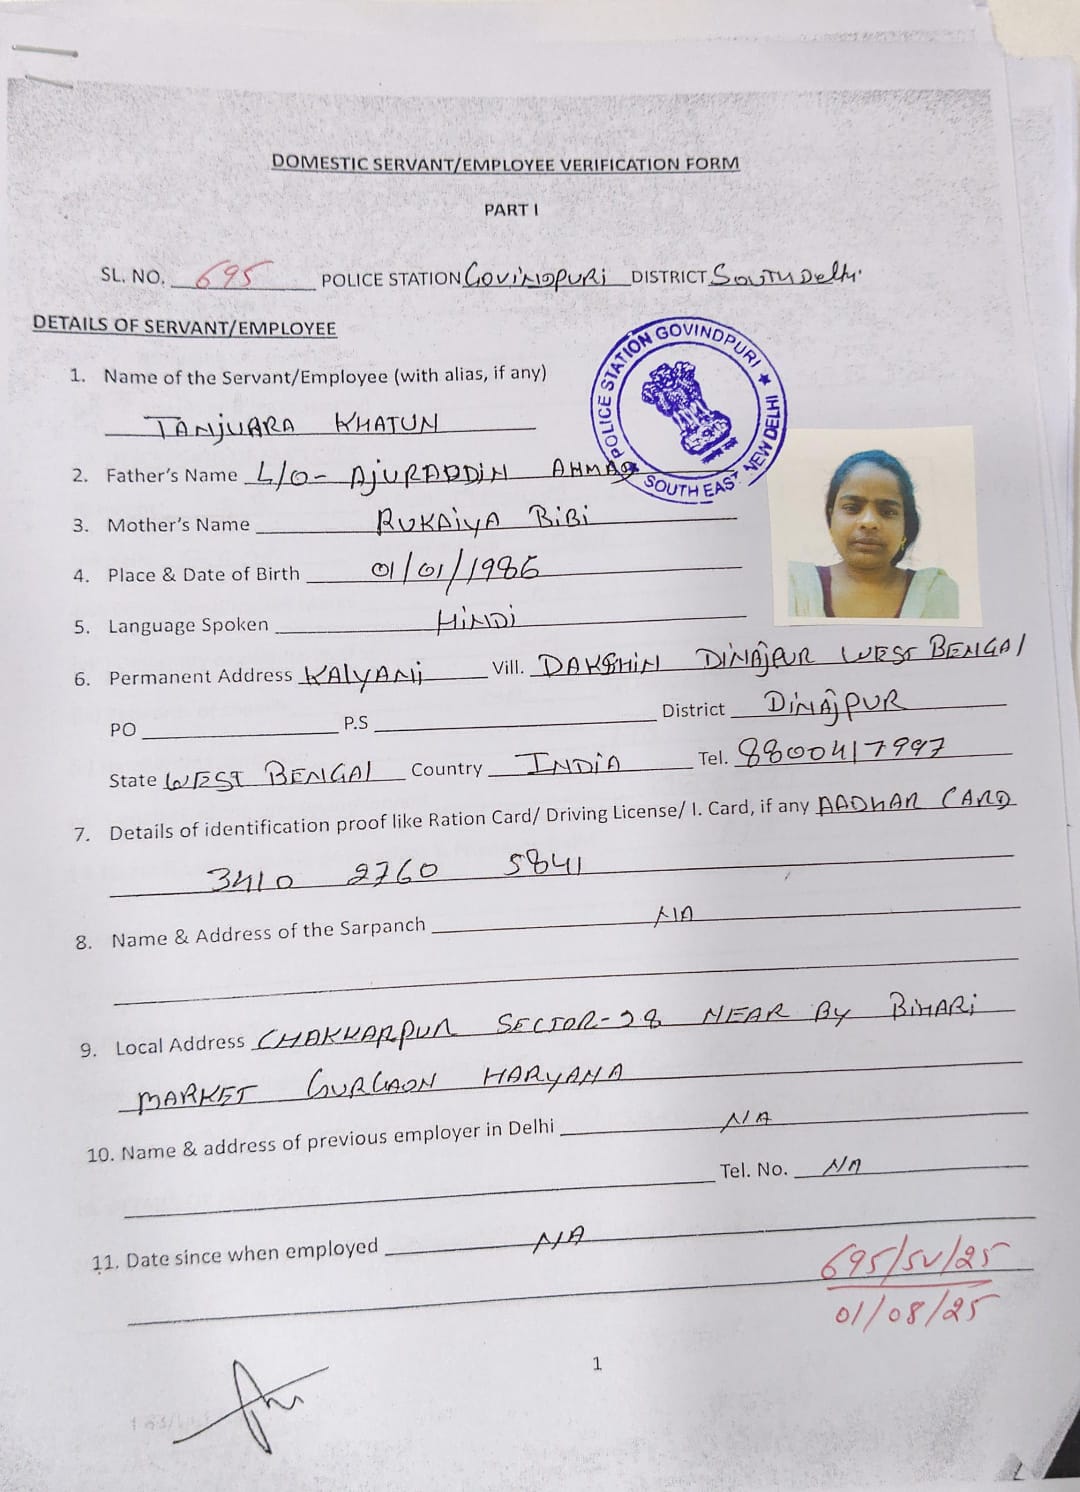 DOMESTIC SERVANT/EMPLOYEE VERIFICATION FORM
PART I
SL. NO. 695 POLICE STATION GOVINDPURI DISTRICT SOUTH Delhi
DETAILS OF SERVANT/EMPLOYEE
POLICE STATION GOVINDPURI ★ SOUTH EAST NEW DELHI
1. Name of the Servant/Employee (with alias, if any)
TANJUARA KHATUN
2. Father's Name L/O- AJURADDIN AHMAD
3. Mother's Name RUKAIYA BIBI
4. Place & Date of Birth 01/01/1986
5. Language Spoken HINDI
6. Permanent Address KALYANI Vill. DAKSHIN DINAJPUR WEST BENGAL
PO P.S District DINAJPUR
State WEST BENGAL Country INDIA Tel. 8800417997
7. Details of identification proof like Ration Card/ Driving License/ I. Card, if any AADHAR CARD
3410 2760 5841
8. Name & Address of the Sarpanch N/A
9. Local Address CHAKKARPUR SECTOR-28 NEAR BY BIHARI
MARKET GURGAON HARYANA
10. Name & address of previous employer in Delhi N/A
Tel. No. NA
11. Date since when employed N/A
695/SV/25
01/08/25
1